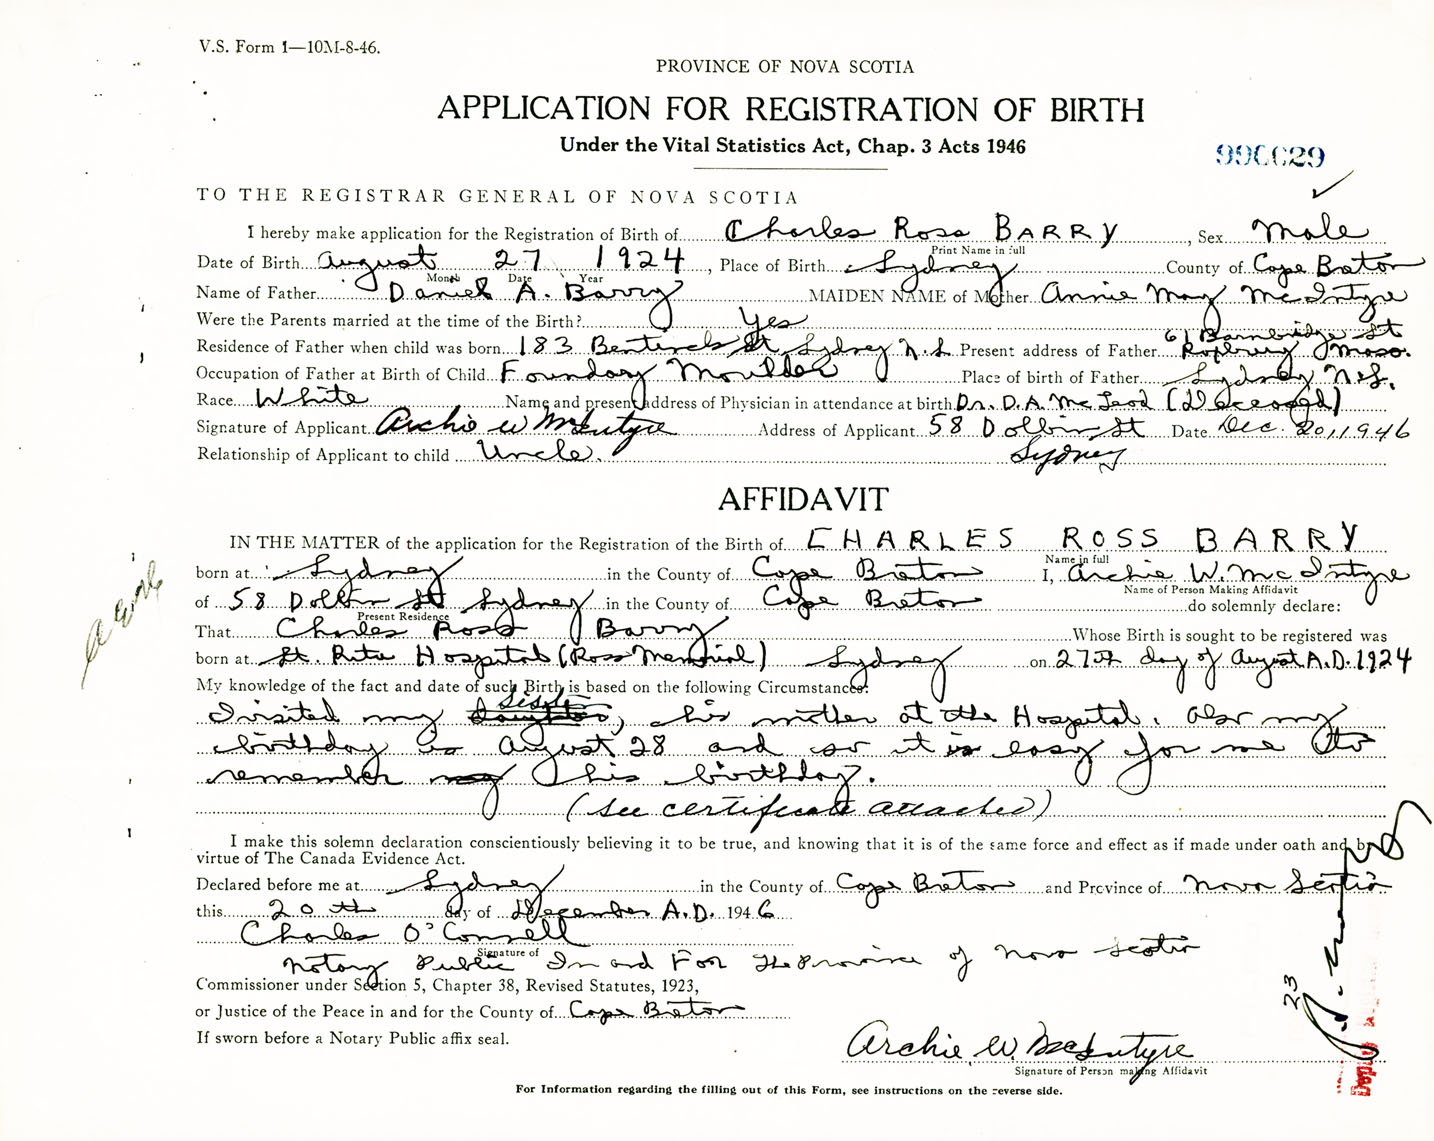 V.S. Form 1—10M-8-46.
PROVINCE OF NOVA SCOTIA
APPLICATION FOR REGISTRATION OF BIRTH
Under the Vital Statistics Act, Chap. 3 Acts 1946
990029
TO THE REGISTRAR GENERAL OF NOVA SCOTIA
I hereby make application for the Registration of Birth of Charles Ross BARRY, Sex Male
Print Name in full
Date of Birth August 27 1924, Place of Birth Sydney County of Cape Breton
Month Date Year
Name of Father Daniel A. Barry MAIDEN NAME of Mother Annie May McIntyre
Were the Parents married at the time of the Birth? Yes
Residence of Father when child was born 183 Bentinck St Sydney N.S. Present address of Father 61 Bainbridge St
Roxbury Mass.
Occupation of Father at Birth of Child Foundary Moulder Place of birth of Father Sydney N.S.
Race White Name and present address of Physician in attendance at birth Dr. D.A. McLeod (Deceased)
Signature of Applicant Archie W McIntyre Address of Applicant 58 Dolbin St Date Dec. 20, 1946
Relationship of Applicant to child Uncle. Sydney
AFFIDAVIT
IN THE MATTER of the application for the Registration of the Birth of CHARLES ROSS BARRY
Name in full
born at Sydney in the County of Cape Breton I, Archie W. McIntyre
Name of Person Making Affidavit
of 58 Dolbin St Sydney in the County of Cape Breton do solemnly declare:
Present Residence
That Charles Ross Barry Whose Birth is sought to be registered was
born at St. Rita Hospital (Ross Memorial) Sydney on 27th day of August A.D. 1924
My knowledge of the fact and date of such Birth is based on the following Circumstances:
sister
I visited my daughter, his mother at the Hospital. Also my
birthday is August 28 and so it is easy for me to
remember my his birthday.
(see certificate attached)
I make this solemn declaration conscientiously believing it to be true, and knowing that it is of the same force and effect as if made under oath and by
virtue of The Canada Evidence Act.
Declared before me at Sydney in the County of Cape Breton and Province of Nova Scotia
this 20th day of December A.D. 1946
Charles O'Connell
Signature of
Notary Public In and For The Province of Nova Scotia
Commissioner under Section 5, Chapter 38, Revised Statutes, 1923,
or Justice of the Peace in and for the County of Cape Breton
If sworn before a Notary Public affix seal.
23
Archie W. McIntyre
Signature of Person making Affidavit
For Information regarding the filling out of this Form, see instructions on the reverse side.